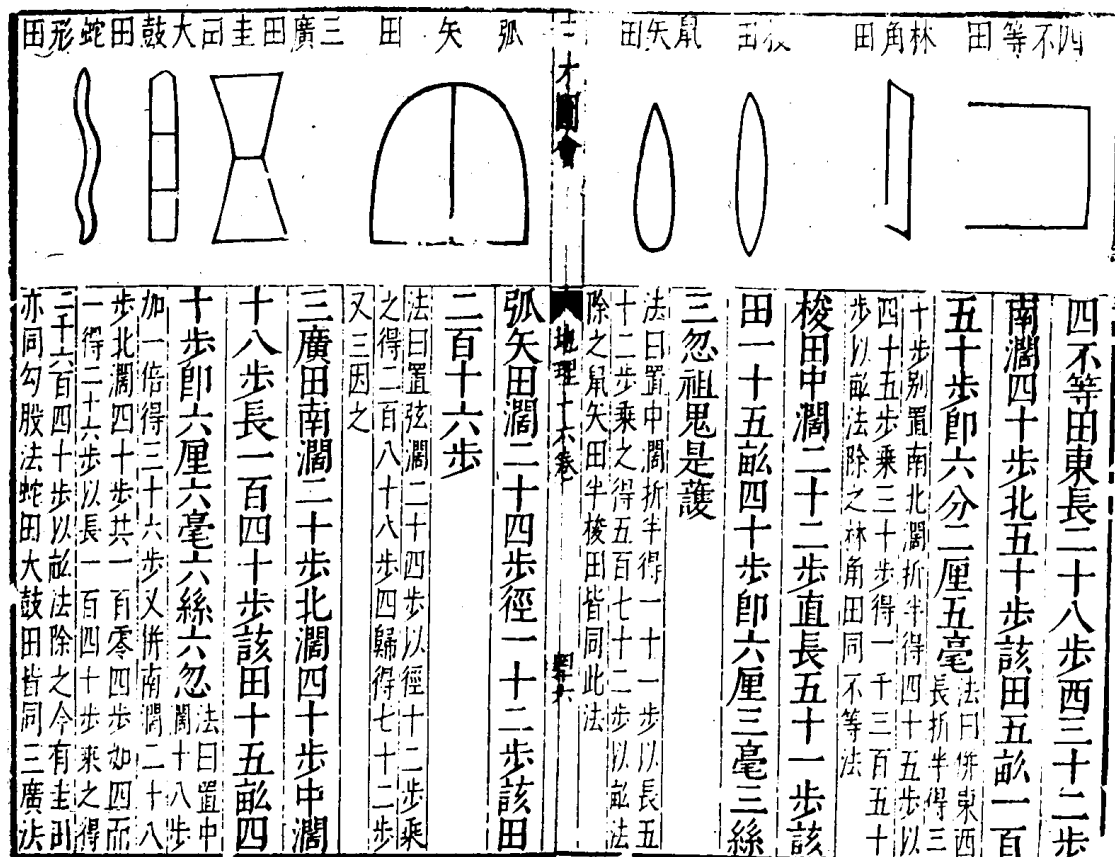 四不等田
林角田
梭田
鼠矢田
四不等田東長二十八步西三十二步
南濶四十步北五十步該田五畝一百
五十步卽六分二厘五毫
法曰併東西
長折半得三
十步別置南北濶折半得四十五步以
四十五步乘三十步得一千三百五十
步以畝法除之林角田同不等法
梭田中濶二十二步直長五十一步該
田一十五畝四十步卽六厘三毫三絲
三忽祖鬼是護
法曰置中濶折半得一十一步以長五
十二步乘之得五百七十二步以畝法
除之鼠矢田半梭田皆同此法
三才圖會
地理十六卷
弧矢田
三廣田
圭田
大鼓田
蛇形田
弧矢田濶二十四步徑一十二步該田
二百十六步
法曰置弦濶二十四步以徑十二步乘
之得二百八十八步四歸得七十二步
又三因之
三廣田南濶二十步北濶四十步中濶
十八步長一百四十步該田十五畝四
十步卽六厘六毫六絲六忽
法曰置中
濶十八步
加一倍得三十六步又併南濶二十八
步北濶四十步共一百零四步如四而
一得二十六步以長一百四十步乘之得
三千六百四十步以畝法除之今有圭
亦同勾股法蛇田大鼓田皆同三廣法